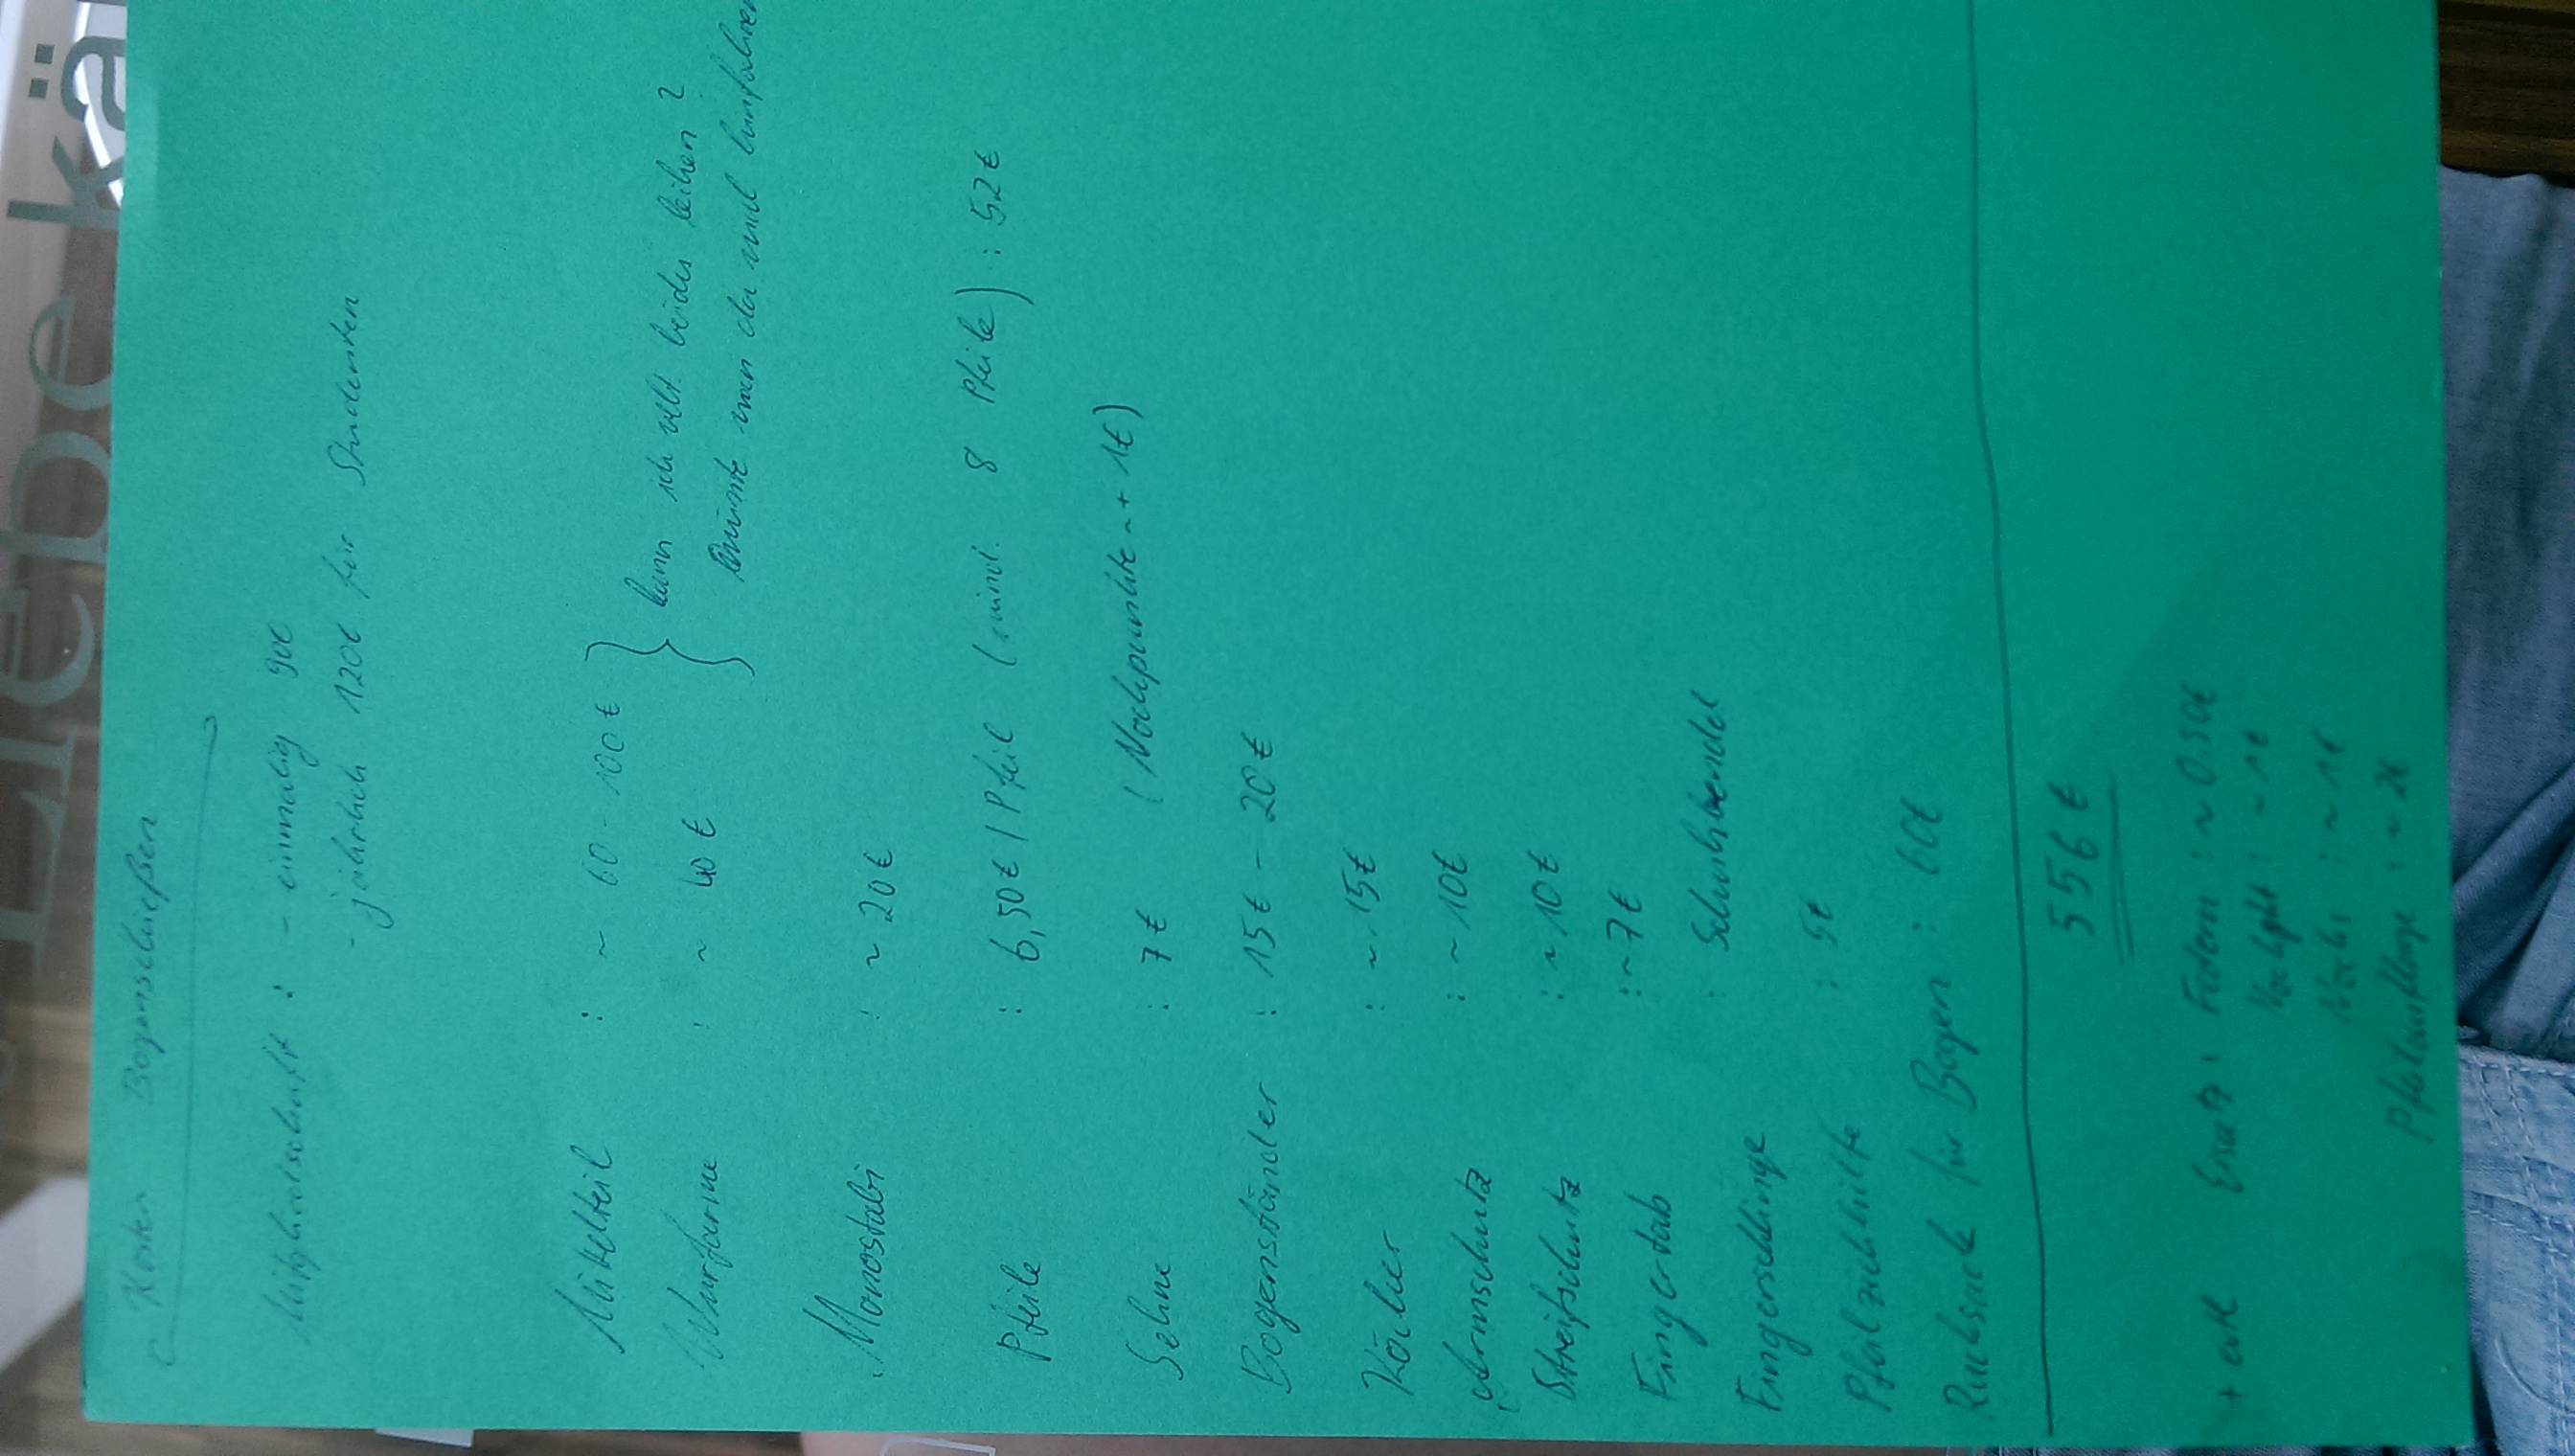 Kosten Bogenschießen
Mitgliedschaft : - einmalig 90€
- jährlich 120€ für Studenten
Mittelteil : ~ 60 - 100€ } kann ich evtl. beides leihen?
Wurfarme : ~ 40€ könnte man da mal hinfahren
Monostabi : ~ 20€
Pfeile : 6,50€ / Pfeil (mind. 8 Pfeile) : 52€
Sehne : 7€ (Nockpunkte ~ + 1€)
Bogenständer : 15€ - 20€
Köcher : ~ 15€
Armschutz : ~ 10€
Streifschutz : ~ 10€
Fingertab : ~ 7€
Fingerschlinge : Schuhbendel
Pfeilziehhilfe : 5€
Rucksack für Bogen : 60€
556€
+ evtl. Ersatz : Federn : ~ 0.50€
Nockpkt : ~ 1€
Nocks : ~ 1€
Pfeilauflage : ~ 2€